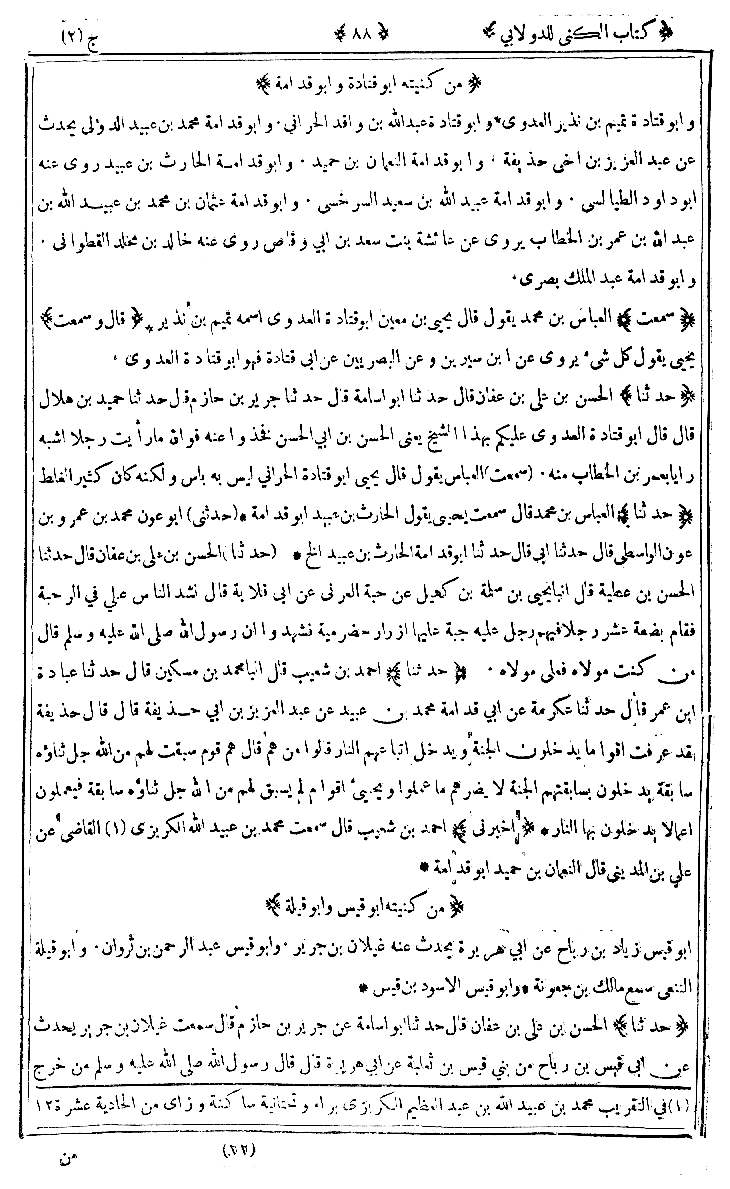 ﴿ كتاب الكنى للدولابي ﴾ ﴿ ٨٨ ﴾ ج (٢)
﴿ من كنيته ابو قتادة و ابو قدامة ﴾
و ابو قتادة تميم بن نذير العدوى * و ابو قتادة عبدالله بن واقد الحراني ٠ و ابو قدامة محمد بن عبيد الدؤلى يحدث
عن عبد العزيز بن اخى حذيفة ٠ و ابو قدامة النعمان بن حميد ٠ و ابو قدامة الحارث بن عبيد روى عنه
ابو داود الطيالسى ٠ و ابو قدامة عبيد الله بن سعيد السرخسى ٠ و ابو قدامة عثمان بن محمد بن عبيد الله بن
عبد الله بن عمر بن الخطاب يروى عن عائشة بنت سعد بن ابي وقاص روى عنه خالد بن مخلد القطوانى ٠
و ابو قدامة عبد الملك بصرى ٠
﴿ سمعت ﴾ العباس بن محمد يقول قال يحيى بن معين ابو قتادة العدوى اسمه تميم بن نذير * ﴿ قال و سمعت ﴾
يحيى يقول كل شىء يروى عن ابن سيرين و عن البصريين عن ابى قتادة فهو ابو قتادة العدوى ٠
﴿ حدثنا ﴾ الحسن بن على بن عفان قال حدثنا ابو اسامة قال حدثنا جرير بن حازم قال حدثنا حميد بن هلال
قال قال ابو قتادة العدوى عليكم بهذا الشيخ يعنى الحسن بن ابي الحسن فخذوا عنه فوالله مارأيت رجلا اشبه
رايا بعمر بن الخطاب منه ٠ (سمعت) العباس يقول قال يحيى ابو قتادة الحراني ليس به باس و لكنه كان كثير الغلط
﴿ حدثنا ﴾ العباس بن محمد قال سمعت يحيى يقول الحارث بن عبيد ابو قدامة * (حدثنى) ابو عون محمد بن عمرو بن
عون الواسطى قال حدثنا ابى قال حدثنا ابو قدامة الحارث بن عبيد الخ * (حدثنا) الحسن بن على بن عفان قال حدثنا
الحسن بن عطية قال انبا يحيى بن سلمة بن كهيل عن حبة العرنى عن ابى قلابة قال نشد الناس علي في الرحبة
فقام بضعة عشر رجلا فيهم رجل عليه جبة عليها ازرار حضرمية نشهدوا ان رسول الله صلى الله عليه و سلم قال
من كنت مولاه فعلى مولاه ٠ ﴿ حدثنا ﴾ احمد بن شعيب قال انبا محمد بن مسكين قال حدثنا عبادة
ابن عمر قال حدثنا عكرمة عن ابي قدامة محمد بن عبيد عن عبد العزيز بن ابي حذيفة قال قال حذيفة
لقد عرفت اقواما يدخلون الجنة ويدخل اتباعهم النار قالوا من هم قال هم قوم سبقت لهم من الله جل ثناؤه
سابقة يدخلون بسابقتهم الجنة لا يضرهم ما عملوا و يجيئ اقوام لم يسبق لهم من الله جل ثناؤه سابقة فيعملون
اعمالا يدخلون بها النار * ﴿ اخبرنى ﴾ احمد بن شعيب قال سمعت محمد بن عبيد الله الكريزى (١) القاضى عن
علي بن المدينى قال النعمان بن حميد ابو قدامة *
﴿ من كنيته ابو قيس وابو قيلة ﴾
ابو قيس زياد بن رباح عن ابي هريرة يحدث عنه غيلان بن جرير ٠ وابو قيس عبد الرحمن بن ثروان ٠ و ابو قيلة
النخعى سمع مالك بن جعونة * وابو قيس الاسود بن قيس *
﴿ حدثنا ﴾ الحسن بن على بن عفان قال حدثنا ابو اسامة عن جرير بن حازم قال سمعت غيلان بن جرير يحدث
عن ابى قيس بن رباح من بني قيس بن ثعلبة عن ابى هريرة قال قال رسول الله صلى الله عليه و سلم من خرج
(١) فى التقريب محمد بن عبيد الله بن عبد العظيم الكريزى براء و تحتانية ساكنة و زاى من الحادية عشرة ١٢
(٢٢) من